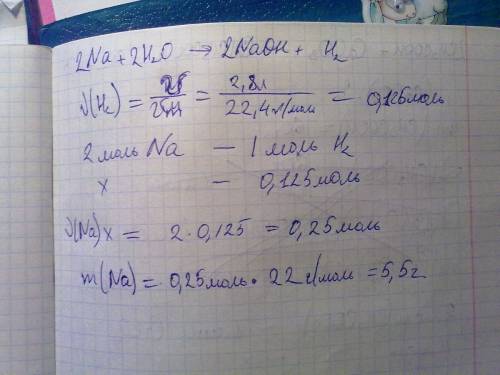 2Na + 2H₂O → 2NaOH + H₂
ν(H₂) = V/Vm = 2,8л/22,4л/моль = 0,125моль
2 моль Na — 1 моль H₂
x — 0,125моль
ν(Na)x = 2·0,125 = 0,25моль
m(Na) = 0,25моль · 22г/моль = 5,5г